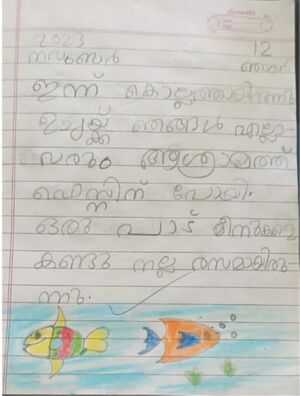 2023
നവംബർ 12
ഞായർ
ഇന്ന് കൊല്ലത്തായിരുന്നു
ഉച്ചയ്ക്ക് ഞങ്ങൾ എല്ലാ
വരും ആശ്രാമത്ത്
ഫെസ്റ്റിന് പോയി.
ഒരു പാട് മീനുകളെ
കണ്ടു നല്ല രസമായിരു-
ന്നു.